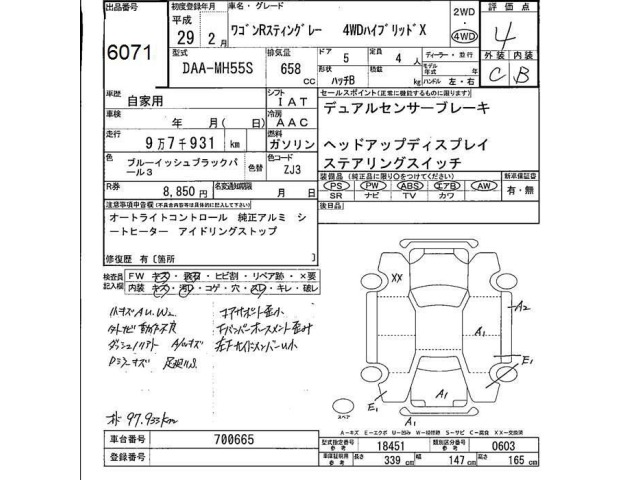 出品番号
6071
初度登録年月
平成
29 2月
車名・グレード
ワゴンRスティングレー 4WDハイブリッドX
2WD
・
4WD
評価点
4
外装 内装
C B
型式
DAA-MH55S
排気量
658
cc
ドア 5
形状 ハッチB
定員 4人
積載 kg
ディーラー・並行
モデル年式 年
ハンドル 左・右
車歴
自家用
シフト
IAT
車検
年 月(日)
冷房
AAC
走行
9万7千931 km
燃料
ガソリン
色
ブルーイッシュブラックパール3
色替
色コード
ZJ3
R券
8,850円
名変通知期限
月 日
セールスポイント(正常に機能するものに限ります)
デュアルセンサーブレーキ
ヘッドアップディスプレイ
ステアリングスイッチ
装備品 (純正品に限り○をつけてください)
PS PW ABS エアB AW
SR ナビ TV カワ
新車保証書
有・無
後日品
注意事項申告欄(不具合内容等は具体的に記入して下さい)
オートライトコントロール 純正アルミ シートヒーター アイドリングストップ
修復歴 有〔箇所 〕
検査員記入欄
FW キズ・飛石・ヒビ割・リペア跡・×要
内装 キズ・汚レ・コゲ・穴・スレ・キレ・破レ
小キズAU.W2
ダッシュ
Pシミキズ
コアサポート歪み
オド 97.933km
XX
A2
A1
E1
A1
E1
A1
スペア
A-キズ E-エクボ U-凹み W-補修跡 S-サビ C-腐食 XX-交換済
車台番号 700665
登録番号
型式指定番号 参考 18451
類別区分番号 参考 0603
車庫証明用 参考 長さ 339 cm 幅 147 cm 高さ 165 cm